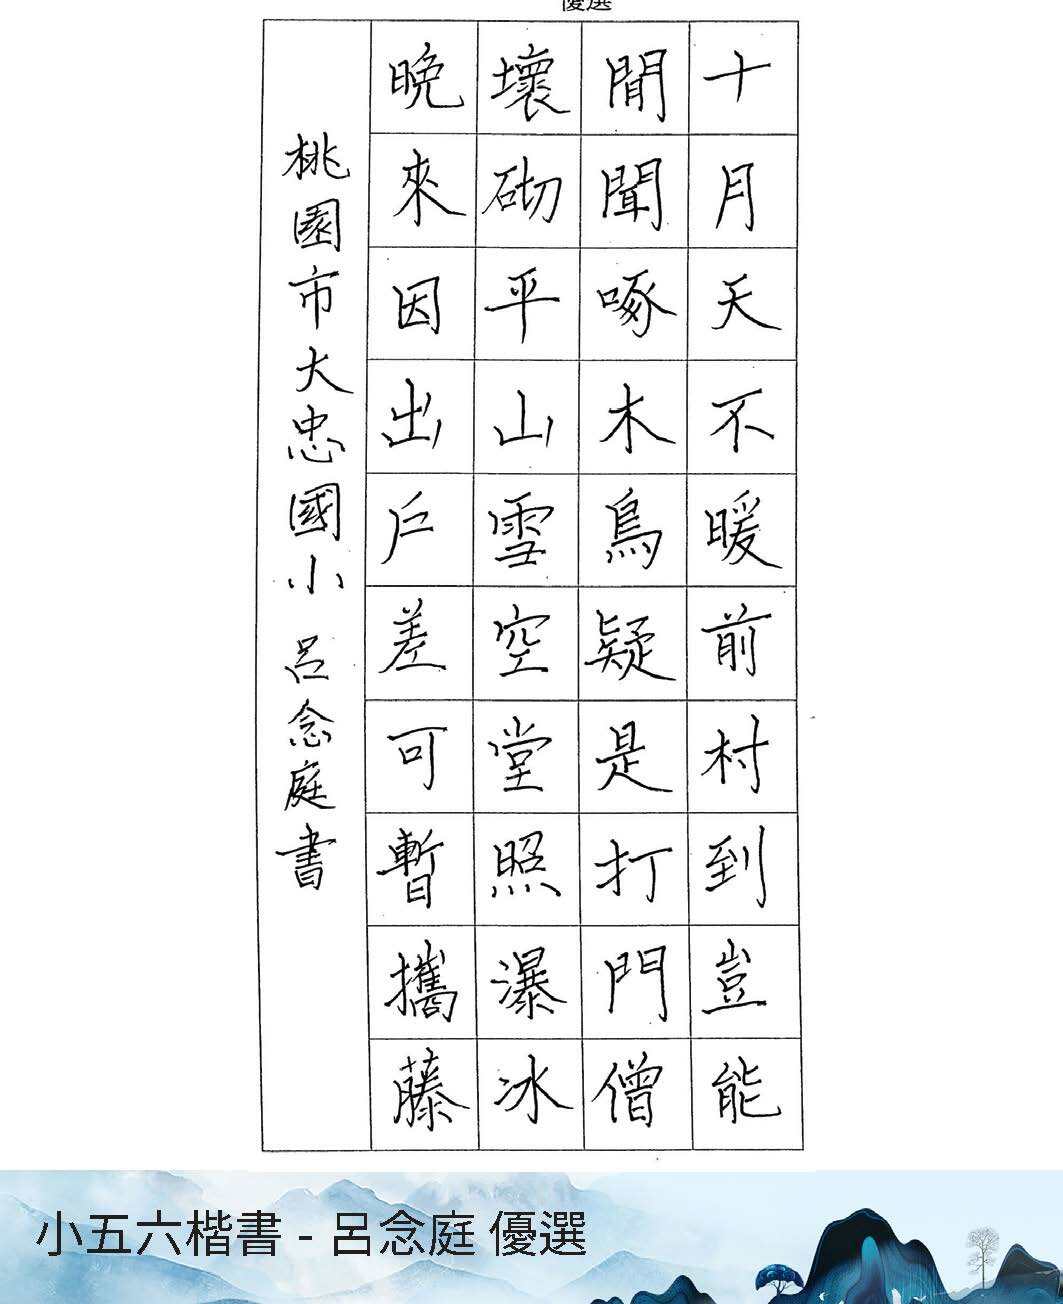 優選
十月天不暖前村到豈能
閒聞啄木鳥疑是打門僧
壞砌平山雪空堂照瀑冰
晚來因出戶差可暫攜藤
桃園市大忠國小 呂念庭書
小五六楷書 - 呂念庭 優選